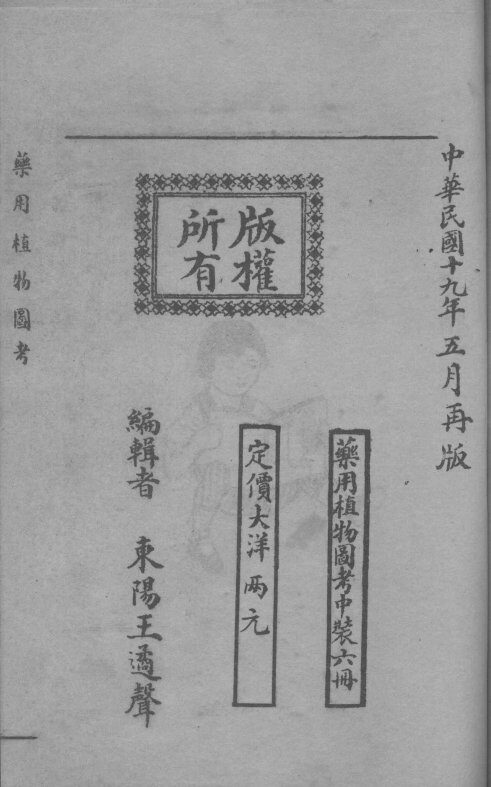 中華民國十九年五月再版
版權
所有
藥用植物圖考中裝六冊
定價大洋兩元
編輯者　東陽王遹聲
藥用植物圖考